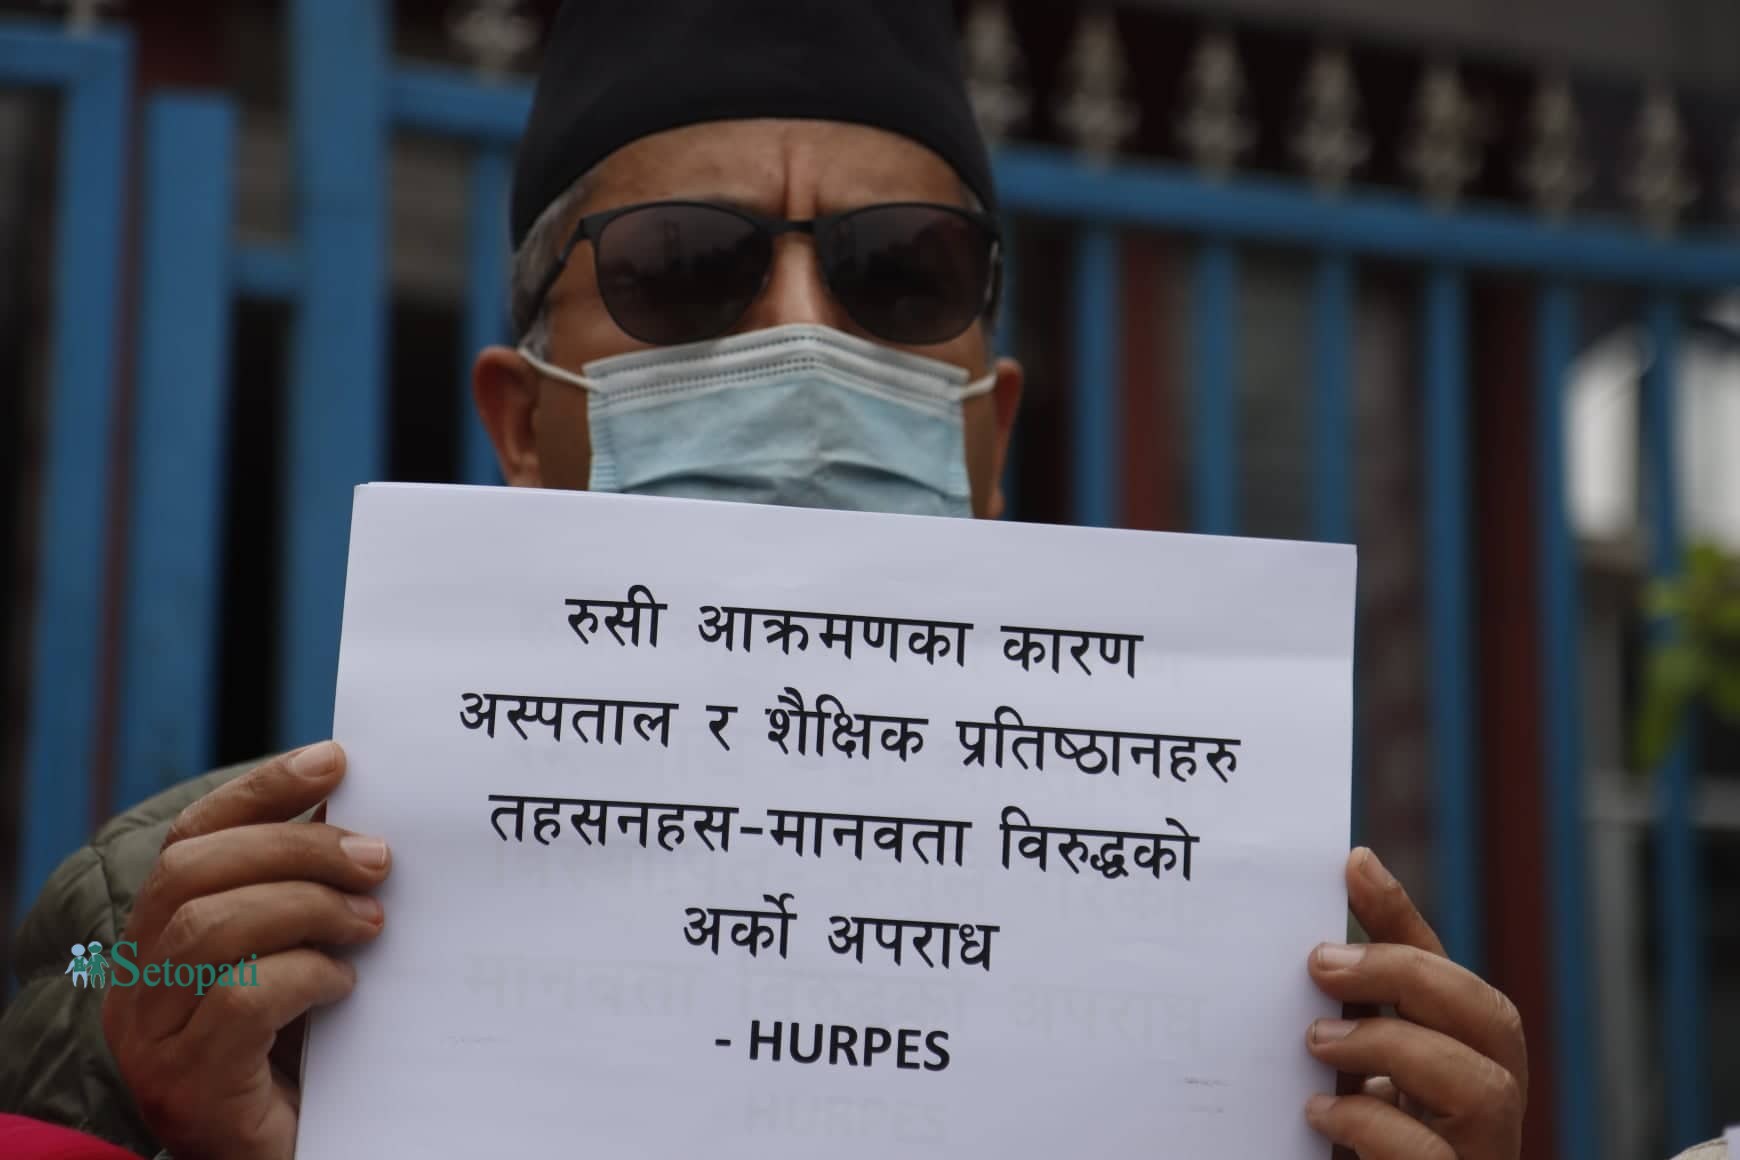 रुसी आक्रमणका कारण
अस्पताल र शैक्षिक प्रतिष्ठानहरु
तहसनहस-मानवता विरुद्धको
अर्को अपराध
- HURPES
Setopati